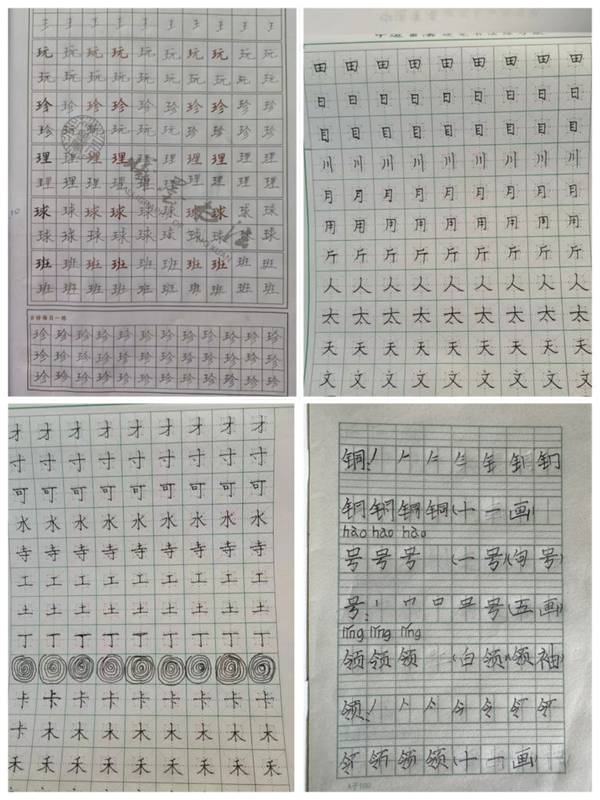 王王王王王王王王王王
玩玩玩玩玩玩玩玩玩玩
玩玩玩玩玩玩玩玩玩玩
珍珍珍珍珍珍珍珍珍珍
珍玩玩玩珍珍珍珍珍珍
理理理理理理理理理理
理理理理理理理理理理
球球球球球球球球球球
球球球球球球球球球球
班班班班班班班班班班
班班班班班班班班班班
每日一练
珍珍珍珍珍珍珍珍珍珍珍
珍珍珍珍珍珍珍珍珍珍珍
珍珍珍珍珍珍珍珍珍珍珍
田田田田田田田田田
日日日日日日日日日
目目目目目目目目目
川川川川川川川川川
月月月月月月月月月
用用用用用用用用用
斤斤斤斤斤斤斤斤斤
人人人人人人人人人
太太太太太太太太太
天天天天天天天天天
文文文文文文文文文
才才才才才才才才才
寸寸寸寸寸寸寸寸寸
可可可可可可可可可
水水水水水水水水水
寺寺寺寺寺寺寺寺寺
工工工工工工工工工
土土土土土土土土土
丁丁丁丁丁丁丁丁丁
卡卡卡卡卡卡卡卡卡
卡木木木木木木木木
禾禾禾禾禾禾禾禾禾
铜:
铜铜铜铜(十一画)
hào hào hào
号号号(一号)(句号)
号:丨 口 号(五画)
lǐng lǐng lǐng
领领领(白领)(领袖)
领:
领领领(十一画)